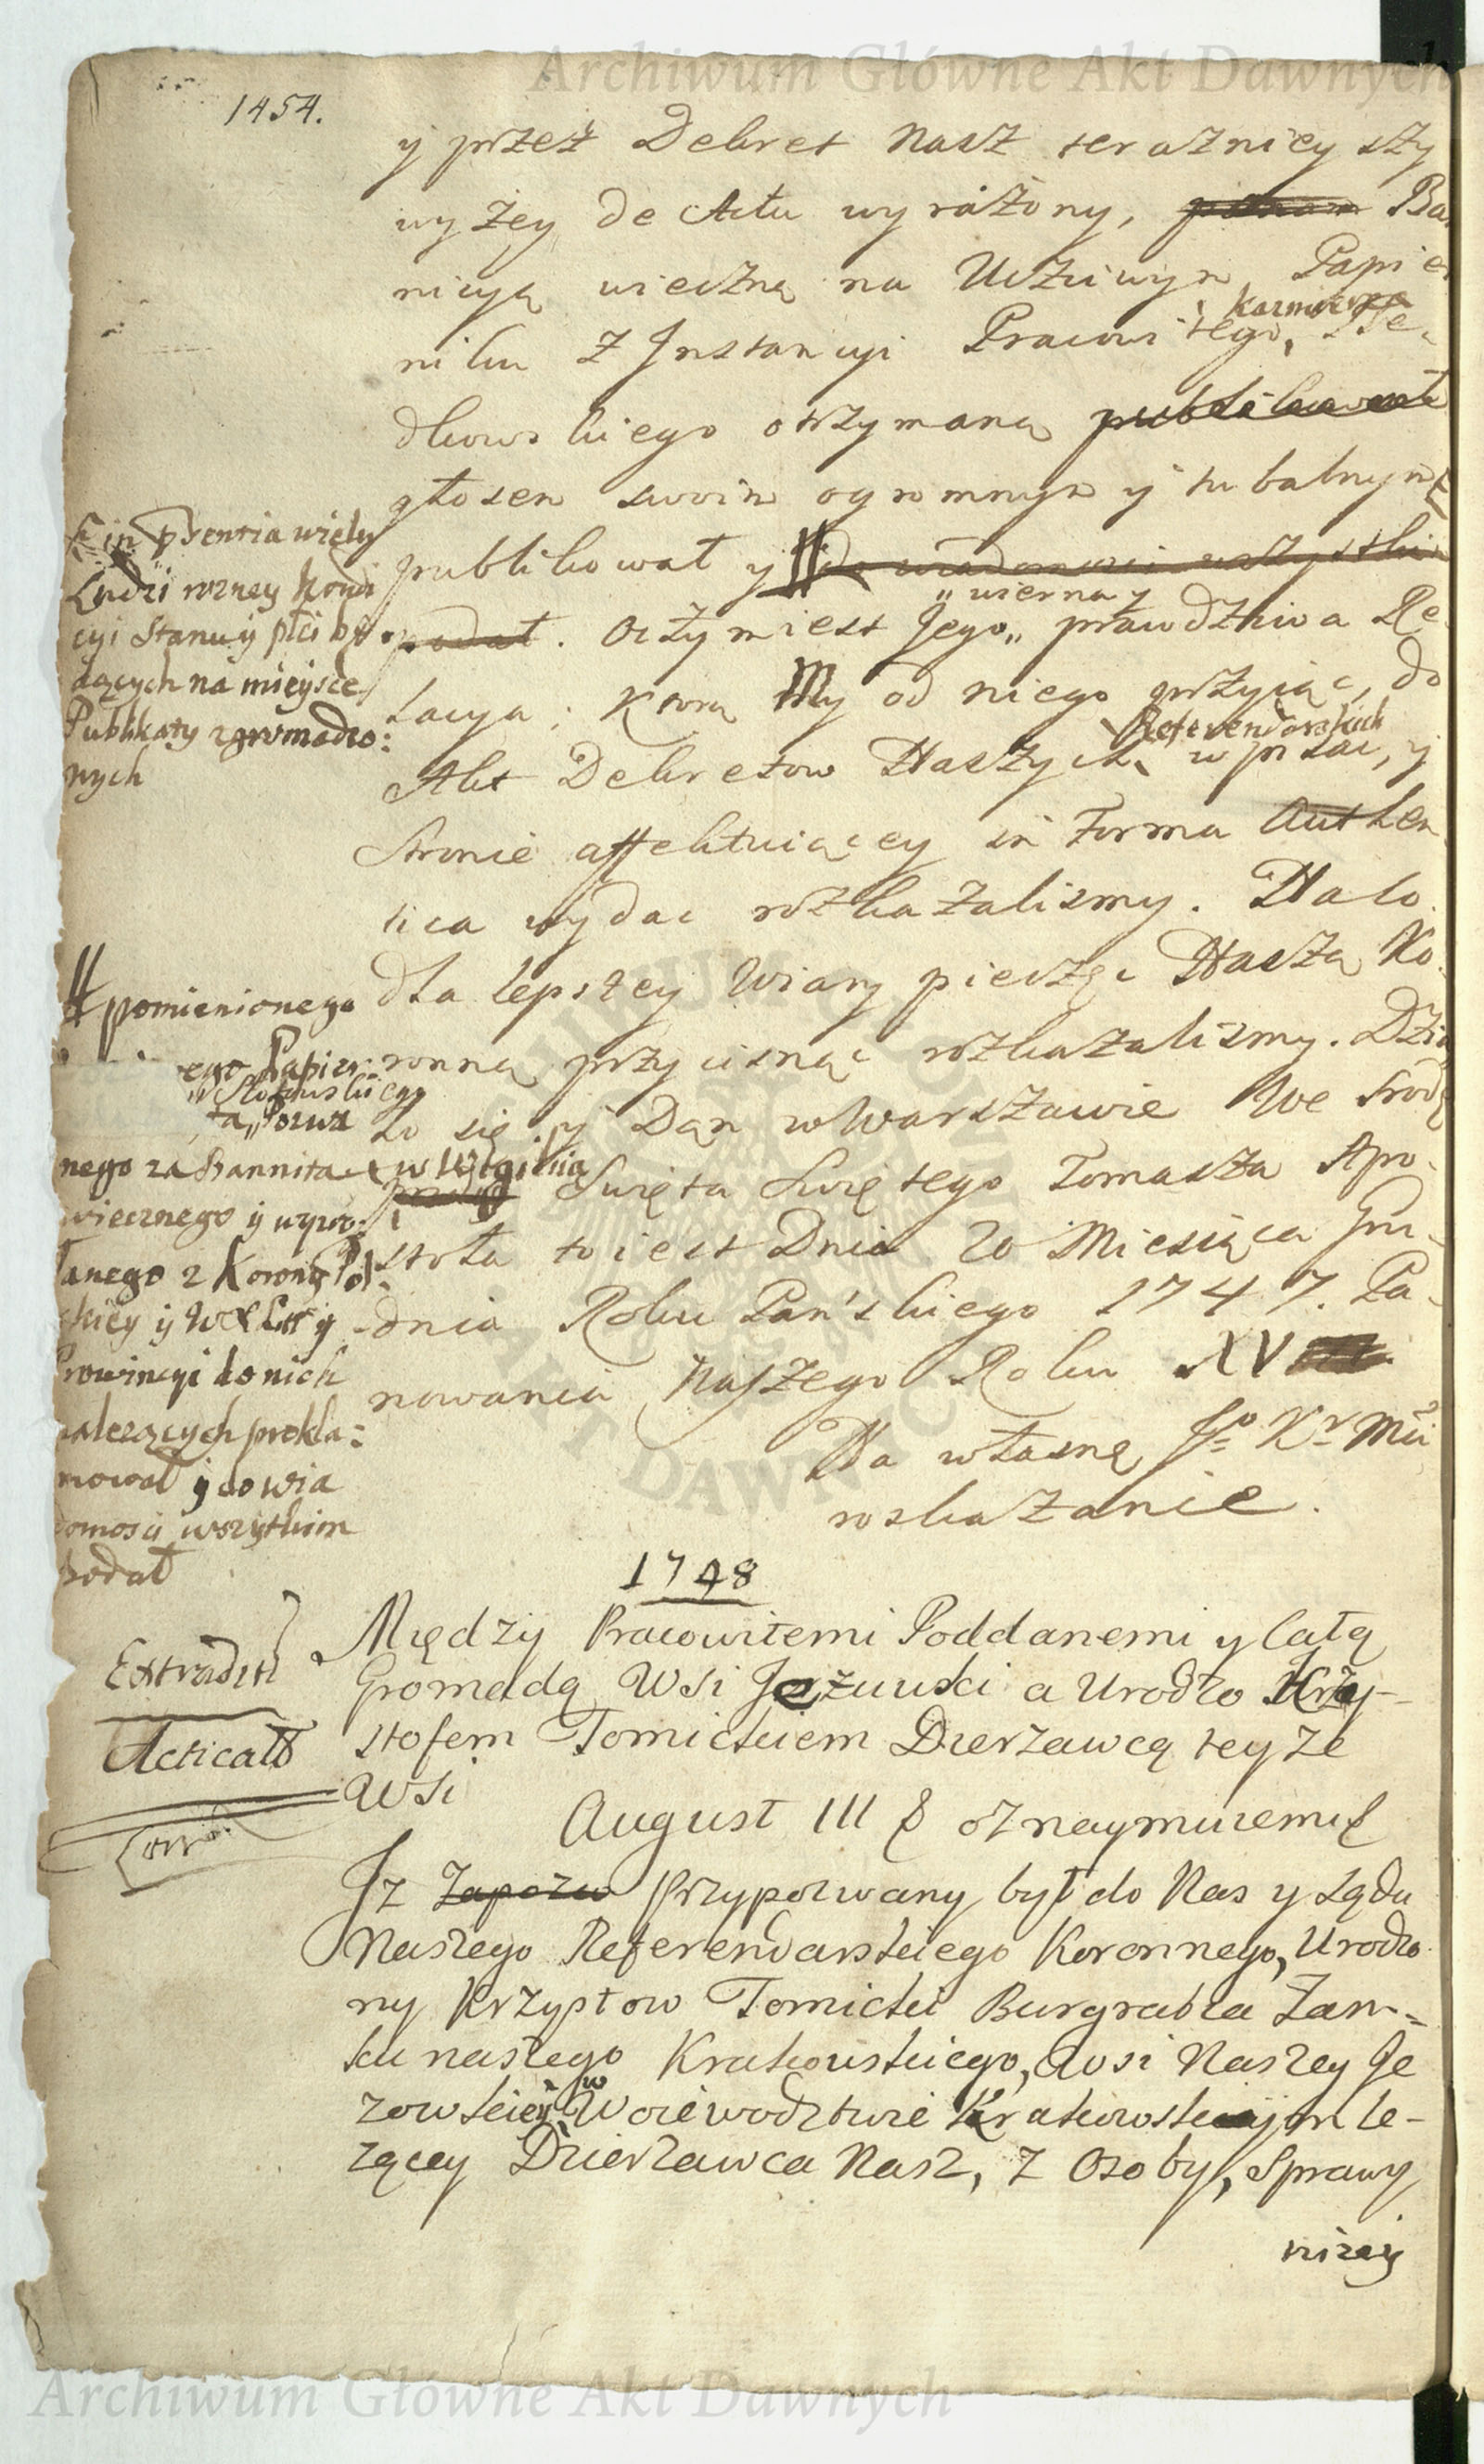 Archiwum Główne Akt Dawnych
1454.
y przez Dekret Nasz teraznieyszy
wyżey de Actu wyrażony, Ba
nicyą wieczną na Uczciwym Papier
niku z Instancyi Pracowitego, Kazmierza Sie
dkowskiego otrzymaną publikował
głosem swoim ogromnym y tubalnym
publikował y do wiadomosci wszystkim
podał. O czym iest Jego „wierna y prawdziwa Re
lacya; Ktorą My od niego przyiąć, do
Akt Dekretow Naszych Referendarskich wpisać, y
Stronie affektuiącey in Forma Authen
tica wydać rozkazalismy. Na co
dla lepszey Wiary pieczęć Naszą Ko
ronną przycisnąć rozkazalismy. Dzia
ło się y Dan w Warszawie We Srodę
w Wigilią Swięta Swiętego Tomasza Apo
stoła to iest Dnia 20 Miesiąca Gru
dnia Roku Pańskiego 1747. Pa
nowania Naszego Roku XV
Na własne Jº Kr Mci
roskazanie.
in prsentia wielu
Ludzi rozney Kondi
cyi Stanu y płci bę
dących na mieysce
Publikaty zgromadzo:
nych
pomienionego
ego Papier
Slotowskiego
ta„ Pozwa
nego za Bannita
wiecznego y wywo
łanego z Korony Pol
skiey y WXLitt y
Prowincyi do nich
nalezących prokla:
mował y do wia
domosci wszytkim
podał
1748
Między Pracowitemi Poddanemi y całą
Gromadą Wsi Jezuwki a Urodzo Krzy-
stofem Tomickiem Dzerzawcą teyze
Wsi
Extradit
Acticatt
Corr
August III oznaymuiemy
Iz Zapozw Przypozwany był do Nas y Sądu
Naszego Referendarskiego Koronnego, Urodzo
ny Krzysztow Tomicki Burgrabia Zam-
ku naszego Krakowskiego, Wsi Naszey Je
zowskiey w Woiewodztwie Krakowskiym le-
zącey Dzierzawca Nasz, z Osoby, Sprawy
nizey
Archiwum Główne Akt Dawnych